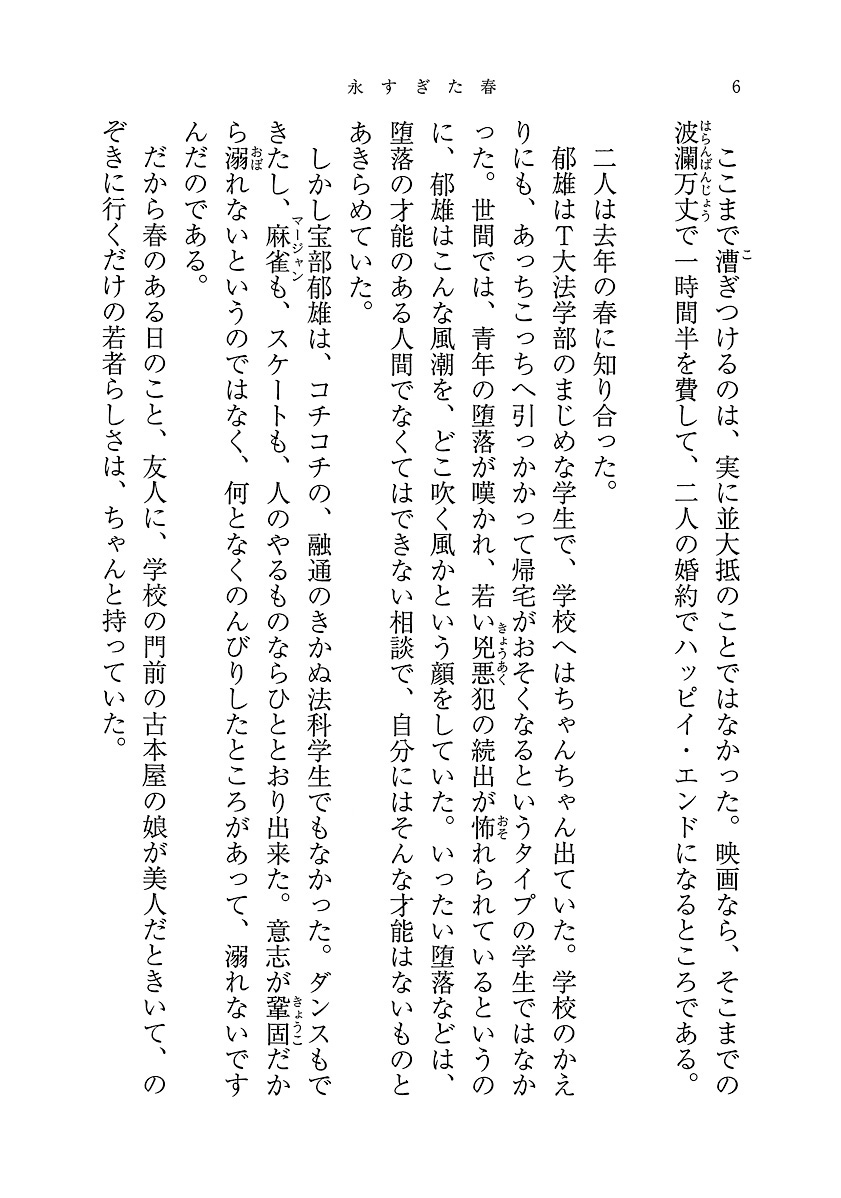 永すぎた春
6
ここまで漕ぎつけるのは、実に並大抵のことではなかった。映画なら、そこまでの
波瀾万丈で一時間半を費して、二人の婚約でハッピイ・エンドになるところである。
二人は去年の春に知り合った。
郁雄はT大法学部のまじめな学生で、学校へはちゃんちゃん出ていた。学校のかえ
りにも、あっちこっちへ引っかかって帰宅がおそくなるというタイプの学生ではなか
った。世間では、青年の堕落が嘆かれ、若い兇悪犯の続出が怖れられているというの
に、郁雄はこんな風潮を、どこ吹く風かという顔をしていた。いったい堕落などは、
堕落の才能のある人間でなくてはできない相談で、自分にはそんな才能はないものと
あきらめていた。
しかし宝部郁雄は、コチコチの、融通のきかぬ法科学生でもなかった。ダンスもで
きたし、麻雀も、スケートも、人のやるものならひととおり出来た。意志が鞏固だか
ら溺れないというのではなく、何となくのんびりしたところがあって、溺れないです
んだのである。
だから春のある日のこと、友人に、学校の門前の古本屋の娘が美人だときいて、の
ぞきに行くだけの若者らしさは、ちゃんと持っていた。
こ
はらんばんじょう
きょうあく
おそ
マージャン
きょうこ
おぼ